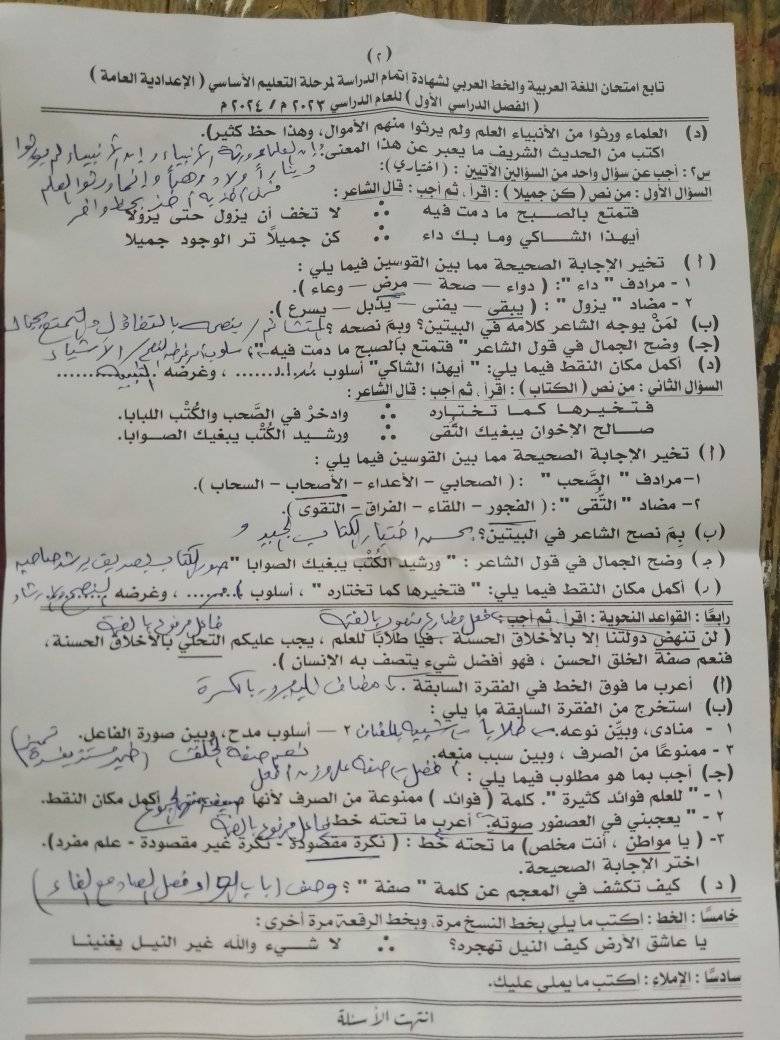 (٢)
تابع امتحان اللغة العربية والخط العربي لشهادة إتمام الدراسة لمرحلة التعليم الأساسي ( الإعدادية العامة )
( الفصل الدراسي الأول ) للعام الدراسي ٢٠٢٣ م / ٢٠٢٤ م
(د) العلماء ورثوا من الأنبياء العلم ولم يرثوا منهم الأموال، وهذا حظ كثير).
اكتب من الحديث الشريف ما يعبر عن هذا المعنى: إن العلماء ورثة الأنبياء وإن الأنبياء لم يورثوا
دينارا ولا درهما وإنما ورثوا العلم
فمن أخذ به أخذ بحظ وافر
س٢: أجب عن سؤال واحد من السؤالين الآتيين : ( اختياري ):
السؤال الأول : من نص ( كن جميلا ) : اقرأ ، ثم أجب : قال الشاعر :
فتمتع بالصبح ما دمت فيه ∴ لا تخف أن يزول حتى يزولا
أيهذا الشاكي وما بك داء ∴ كن جميلاً تر الوجود جميلا
( أ ) تخير الإجابة الصحيحة مما بين القوسين فيما يلي :
١ - مرادف " داء ": ( دواء – صحة – مرض – وعاء ).
٢ - مضاد " يزول " : ( يبقى – يفنى – يذبل – يسرع ).
(ب) لمَنْ يوجه الشاعر كلامه في البيتين؟ وبمَ نصحه ؟ المتشائم / ينصحه بالتفاؤل والتمتع بجمال
(جـ) وضح الجمال في قول الشاعر " فتمتع بالصبح ما دمت فيه ": أسلوب أمر غرضه النصح / الأشياء
(د) أكمل مكان النقط فيما يلي: " أيهذا الشاكي" أسلوب نداء ....... ، وغرضه التنبيه ..........
السؤال الثاني : من نص ( الكتاب ) : اقرأ ، ثم أجب : قال الشاعر :
فتخيرها كما تختاره ∴ وادخرْ في الصَّحب والكُتْب اللبابا.
صالح الإخوان يبغيك التُّقى ∴ ورشيد الكُتْب يبغيك الصوابا.
( أ ) تخير الإجابة الصحيحة مما بين القوسين فيما يلي :
١- مرادف " الصَّحب " : ( الصحابي - الأعداء - الأصحاب - السحاب ).
٢- مضاد " التُّقى " : ( الفجور - اللقاء - الفراق - التقوى ).
(ب) بِمَ نصح الشاعر في البيتين؟: بحسن اختيار الكتاب الجيد و
(جـ) وضح الجمال في قول الشاعر : " ورشيد الكُتْب يبغيك الصوابا " صور الكتاب بصديق يرشد صاحبه
(د) أكمل مكان النقط فيما يلي: " فتخيرها كما تختاره " ، أسلوب أمر ..... ، وغرضه النصح والإرشاد
رابعًا : القواعد النحوية : اقرأ ، ثم أجب : فعل مضارع منصوب بالفتحة فاعل مرفوع بالضمة
( لن تنهض دولتنا إلا بالأخلاق الحسنة ، فيا طلابًا للعلم ، يجب عليكم التحلي بالأخلاق الحسنة،
فنعم صفة الخلق الحسن ، فهو أفضل شيء يتصف به الإنسان ).
(أ) أعرب ما فوق الخط في الفقرة السابقة . مضاف إليه مجرور بالكسرة
(ب) استخرج من الفقرة السابقة ما يلي :
١ - منادى، وبيِّن نوعه. طلابا شبيه بالمضاف ٢ – أسلوب مدح، وبين صورة الفاعل.
نعم صفة الخلق (ضمير مستتر يفسره تمييز)
٣ - ممنوعًا من الصرف ، وبين سبب منعه. أفضل صفة على وزن أفعل
(جـ) أجب بما هو مطلوب فيما يلي :
١ - " للعلم فوائد كثيرة ". كلمة ( فوائد ) ممنوعة من الصرف لأنها صيغة منتهى الجموع أكمل مكان النقط.
٢ - " يعجبني في العصفور صوته. أعرب ما تحته خط. فاعل مرفوع بالضمة
٣- ( يا مواطن ، أنت مخلص) ما تحته خط : ( نكرة مقصودة - نكرة غير مقصودة - علم مفرد).
اختر الإجابة الصحيحة.
( د ) كيف تكشف في المعجم عن كلمة " صفة " ؟ وصف (باب الواو فصل الصاد مع الفاء)
خامسًا : الخط : اكتب ما يلي بخط النسخ مرة، وبخط الرقعة مرة أخرى :
يا عاشق الأرض كيف النيل تهجره؟ ∴ لا شيء والله غير النيل يغنينا
سادسًا : الإملاء : اكتب ما يملى عليك.
انتهت الأسئلة